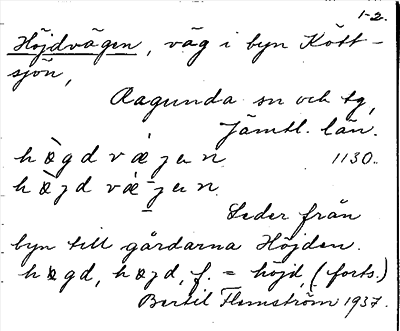 1-2.
Höjdvägen, väg i byn Kött-
sjön,
Ragunda sn och tg,
Jämtl. län.
hægd væjen. 1130.
hæjd væjen.
Leder från
byn till gårdarna Höjden.
hægd, hæjd, f. = höjd, (forts.)
Bertil Flemström 1937.